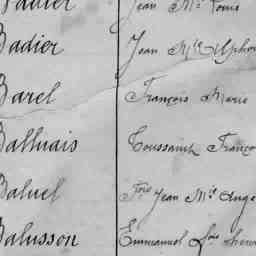 Jean Mie Louis
Badier Jean Mie Alphon
Barel François Marie
Balluais Toussaint Franço
Baluel Fçois Jean Mie Ange
Balusson Emmanuel